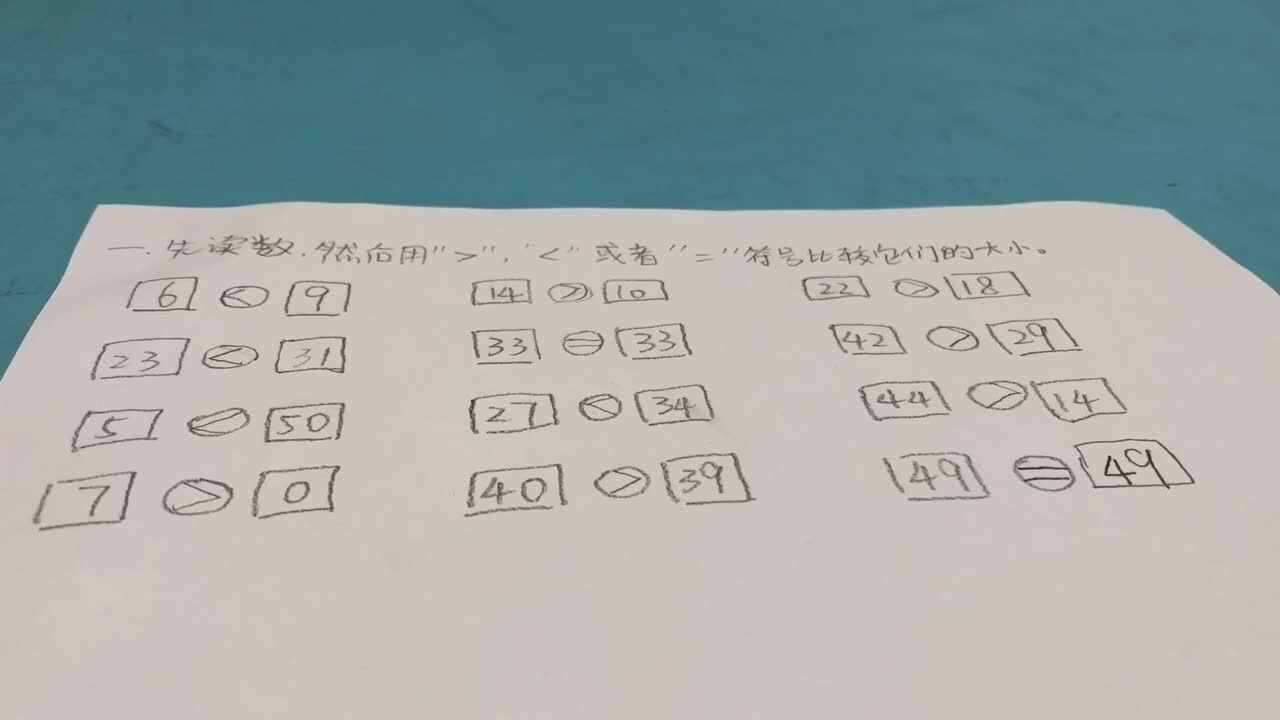 一.先读数,然后用">","<"或者"="符号比较它们的大小。
6 < 9 14 > 10 22 > 18
23 < 31 33 = 33 42 > 29
5 < 50 27 < 34 44 > 14
7 > 0 40 > 39 49 = 49